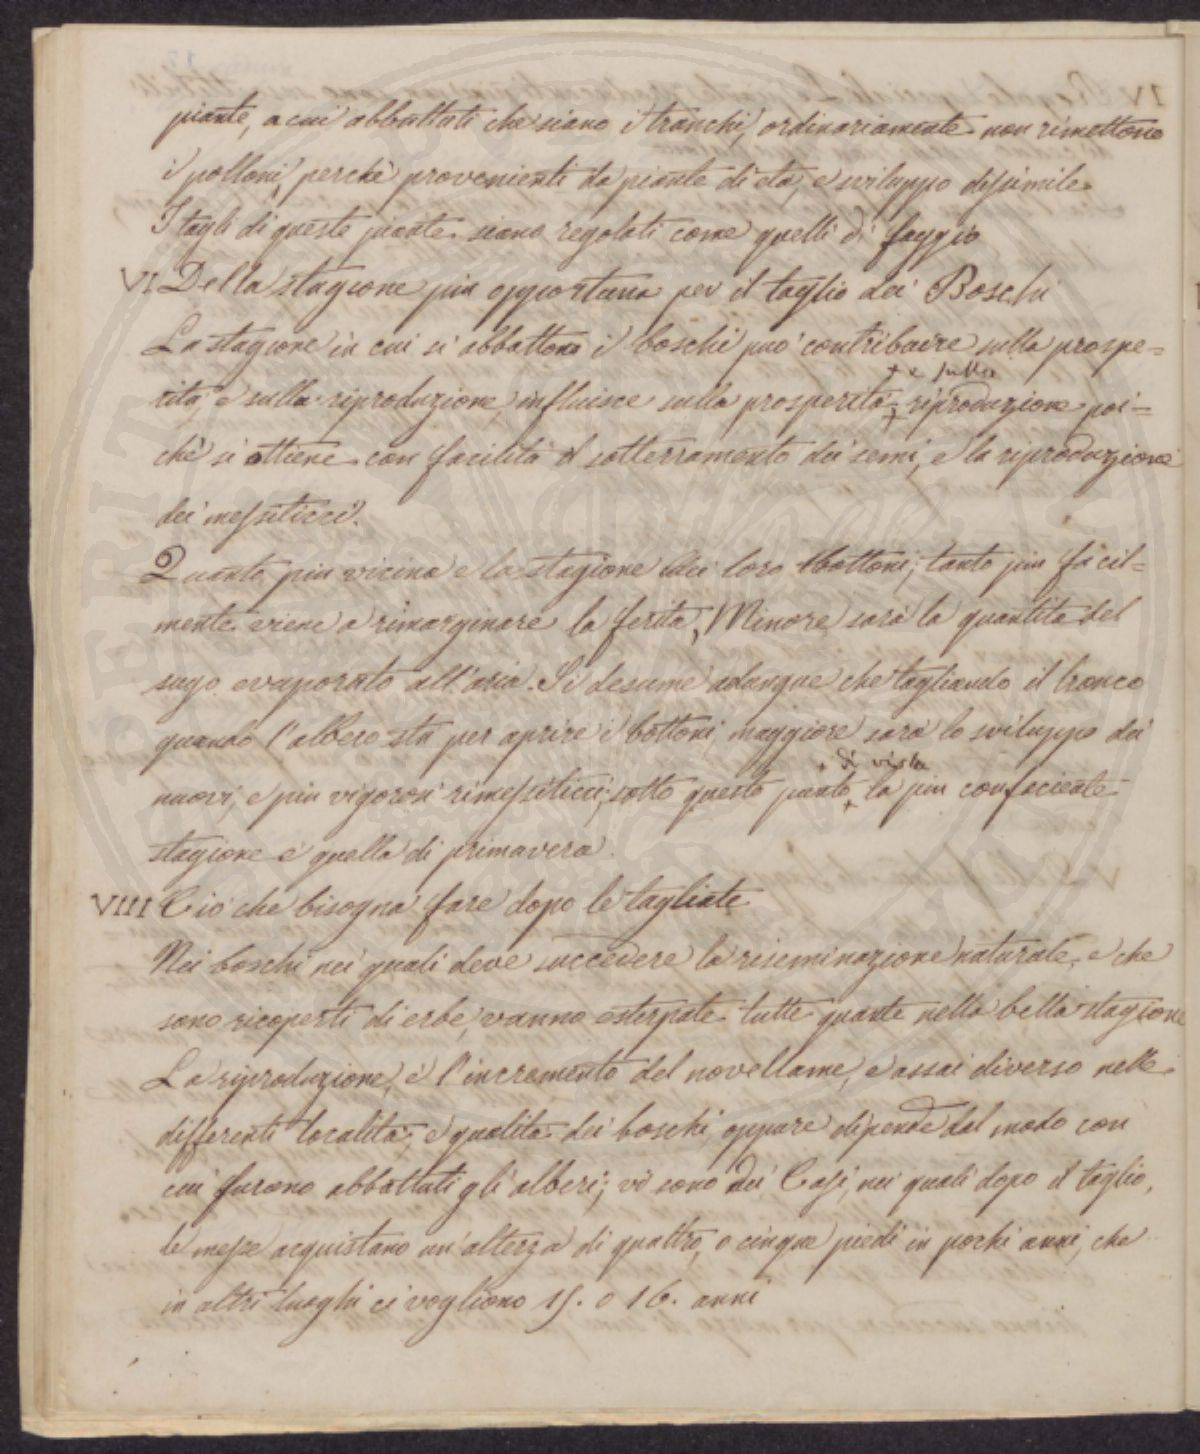 piante, a cui abbattuti che siano i tronchi, ordinariamente non rimettono
i polloni, perchè provenienti da piante di età, e sviluppo dissimile
I tagli di queste piante siano regolati come quelli di faggio
VI Della stagione più opportuna per il taglio dei Boschi
La stagione in cui si abbattono i boschi può contribuire sulla prospe=
rità, e sulla riproduzione, influisce sulla prosperità + e sulla riproduzione poi=
chè si ottiene con facilità il sotterramento dei semi, e la riproduzione
dei messiticci.
Quanto più vicina e la stagione dei loro bottoni; tanto più facil=
mente viene a rimarginare la ferita, Minore sarà la quantità del
sugo evaporato all'aria. Si desume adunque che tagliando il tronco
quando l'albero sta per aprire i bottoni, maggiore sarà lo sviluppo dei
nuovi, e più vigorosi rimessiticci; sotto questo punto + di vista la più confaciente
stagione è quella di primavera.
VIII Ciò che bisogna fare dopo le tagliate
Nei boschi nei quali deve succedere la riseminazione naturale, e che
sono ricoperti di erbe, vanno esterpate tutte quante nella bella stagione
La riproduzione, e l'incremento del novellame, è assai diverso nelle
differenti località, e qualità dei boschi, oppure dipende dal modo con
cui furono abbattuti gli alberi; vi sono dei Casi, nei quali dopo il taglio,
le messe acquistano un'altezza di quattro, o cinque piedi in pochi anni, che
in altri luoghi ci vogliono 15. o 16. anni